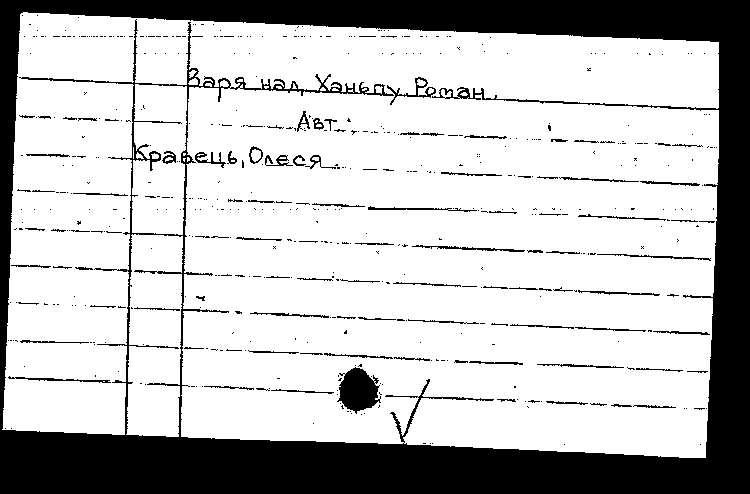 Заря над Ханьпу. Роман.
Авт.:
Кравець, Олеся.